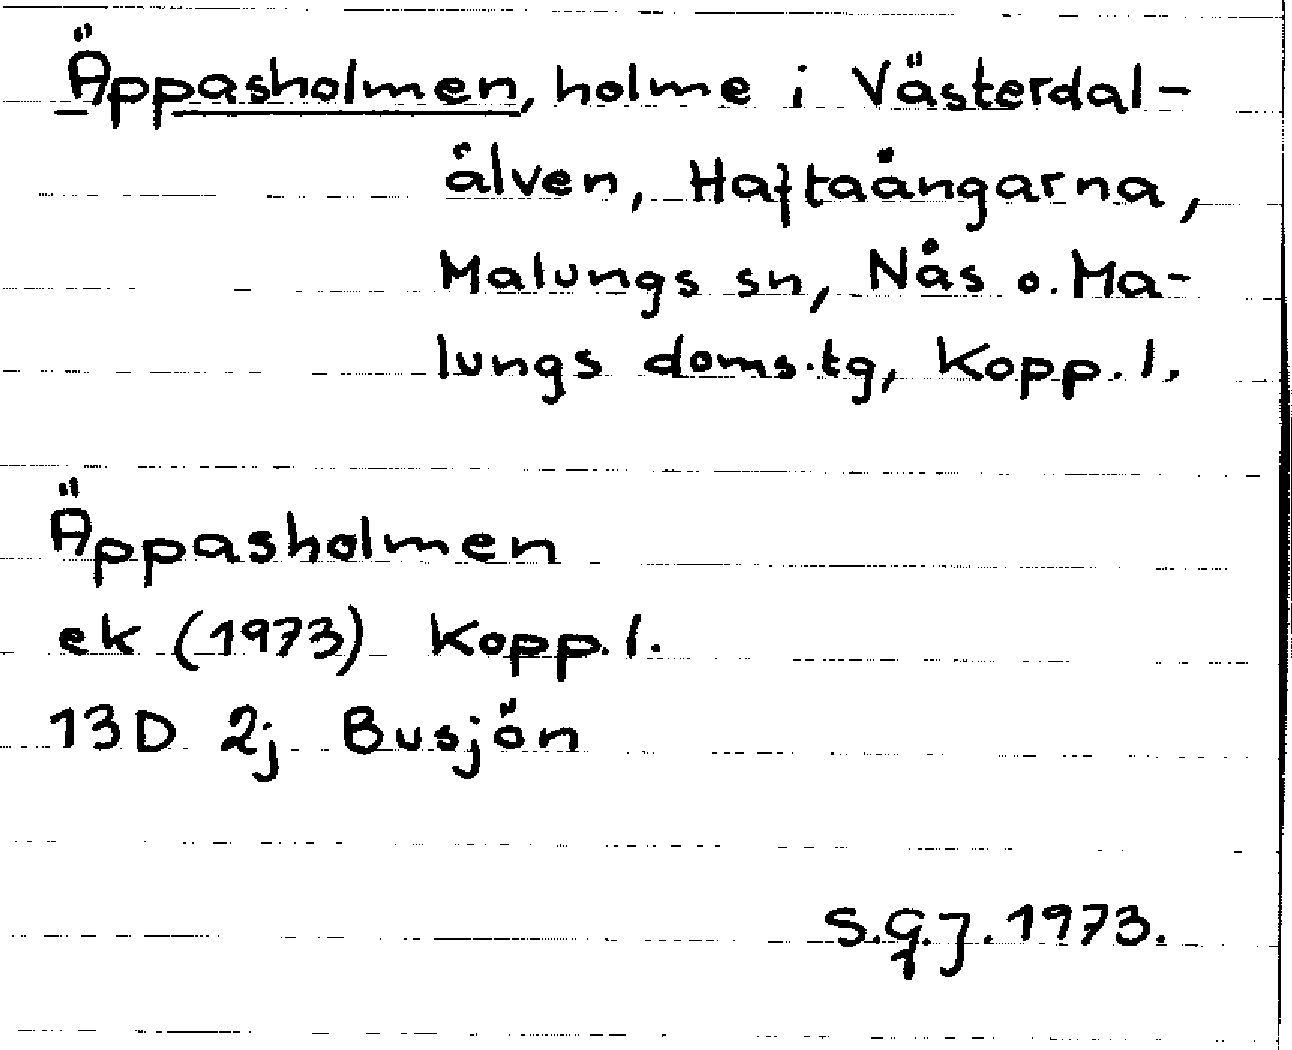 Äppasholmen, holme i Västerdal-
älven, Haftaängarna,
Malungs sn, Nås o. Ma-
lungs doms.tg, Kopp. l.
Äppasholmen
ek (1973) Kopp. l.
13D 2j Busjön
S.G.J. 1973.